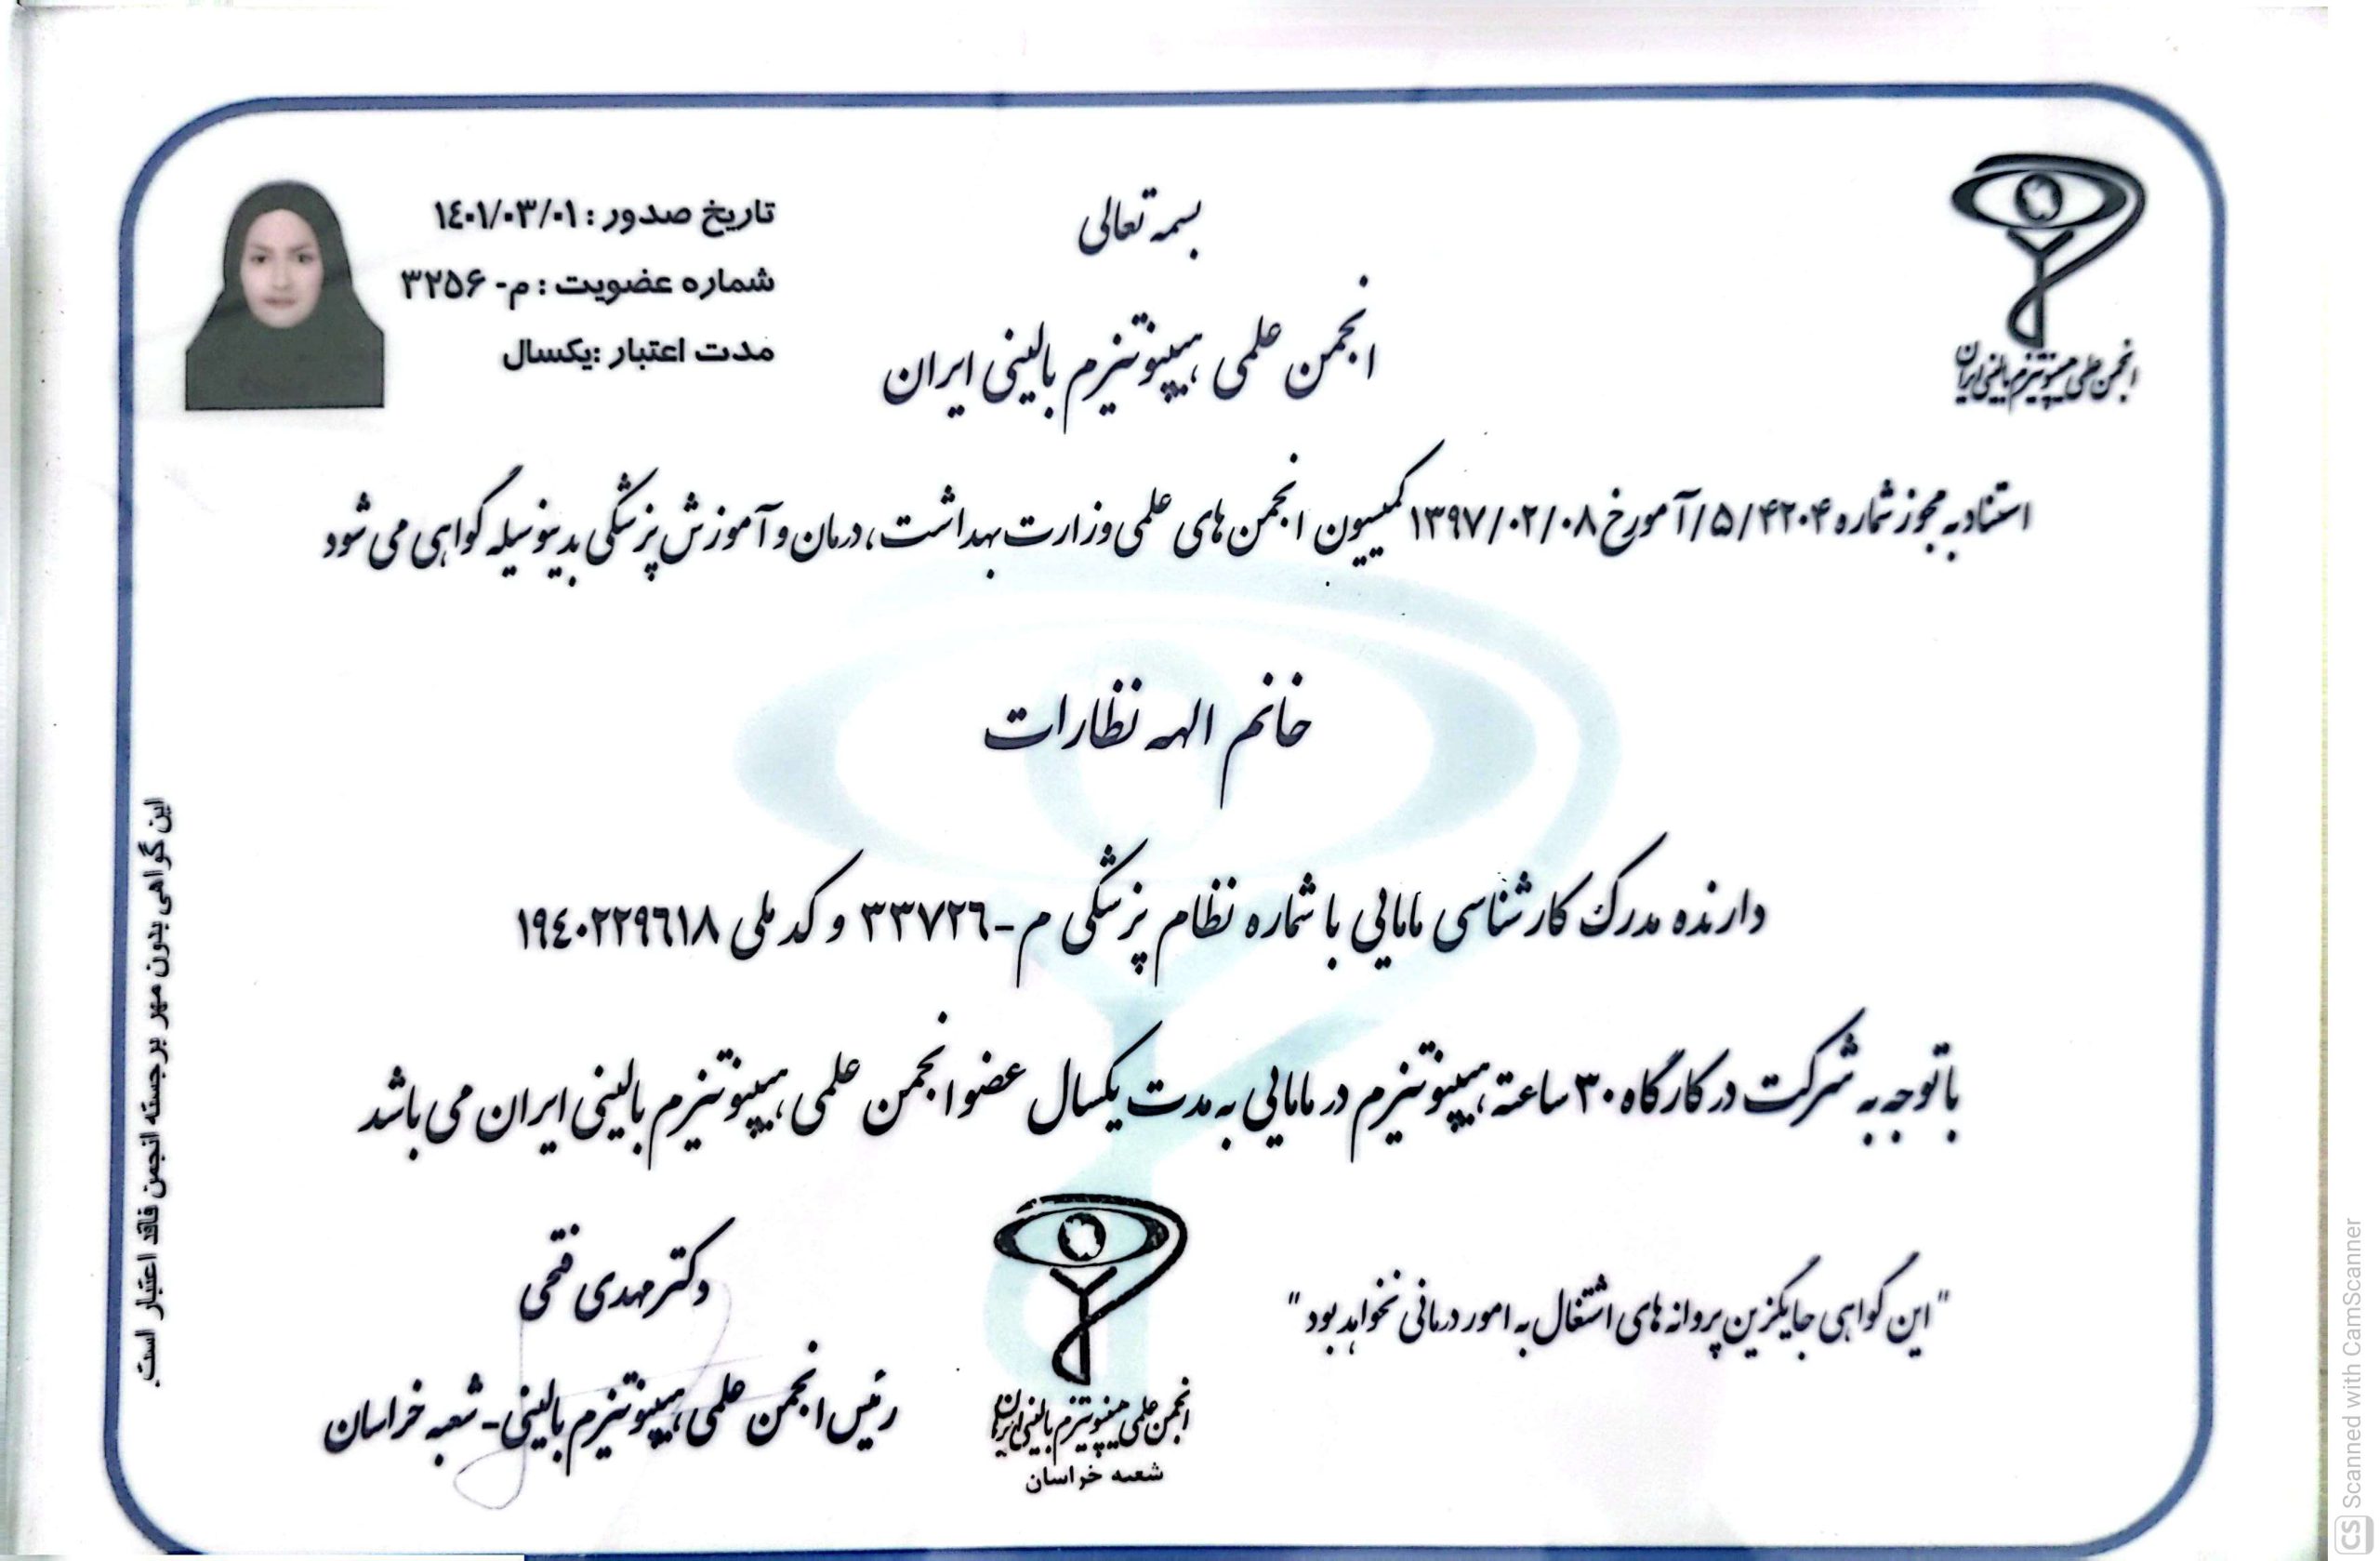 بسمه تعالی
انجمن علمی هیپنوتیزم بالینی ایران
تاریخ صدور : ١٤٠١/٠٣/٠١
شماره عضویت : م- ۳۲۵۶
مدت اعتبار :یکسال
انجمن علمی هیپنوتیزم بالینی ایران
استناد به مجوز شماره ۴۲۰۴/۵/آ مورخ ۱۳۹۷/۰۲/۰۸ کمیسیون انجمن های علمی وزارت بهداشت، درمان و آموزش پزشکی بدینوسیله گواهی می شود
خانم الهه نظارات
دارنده مدرک کارشناسی مامایی با شماره نظام پزشکی م-٣٣٧٢٦ و کد ملی ١٩٤٠٢٢٩٦١٨
با توجه به شرکت در کارگاه ۳۰ ساعته هیپنوتیزم در مامایی به مدت یکسال عضو انجمن علمی هیپنوتیزم بالینی ایران می باشد
" این گواهی جایگزین پروانه های اشتغال به امور درمانی نخواهد بود "
دکتر مهدی فتحی
رئیس انجمن علمی هیپنوتیزم بالینی- شعبه خراسان
انجمن علمی هیپنوتیزم بالینی ایران
شعبه خراسان
این گواهی بدون مهر برجسته انجمن فاقد اعتبار است.
CS Scanned with CamScanner